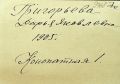 Григорьева
Дарья Яковлевна
1905.
Конопатная 1.